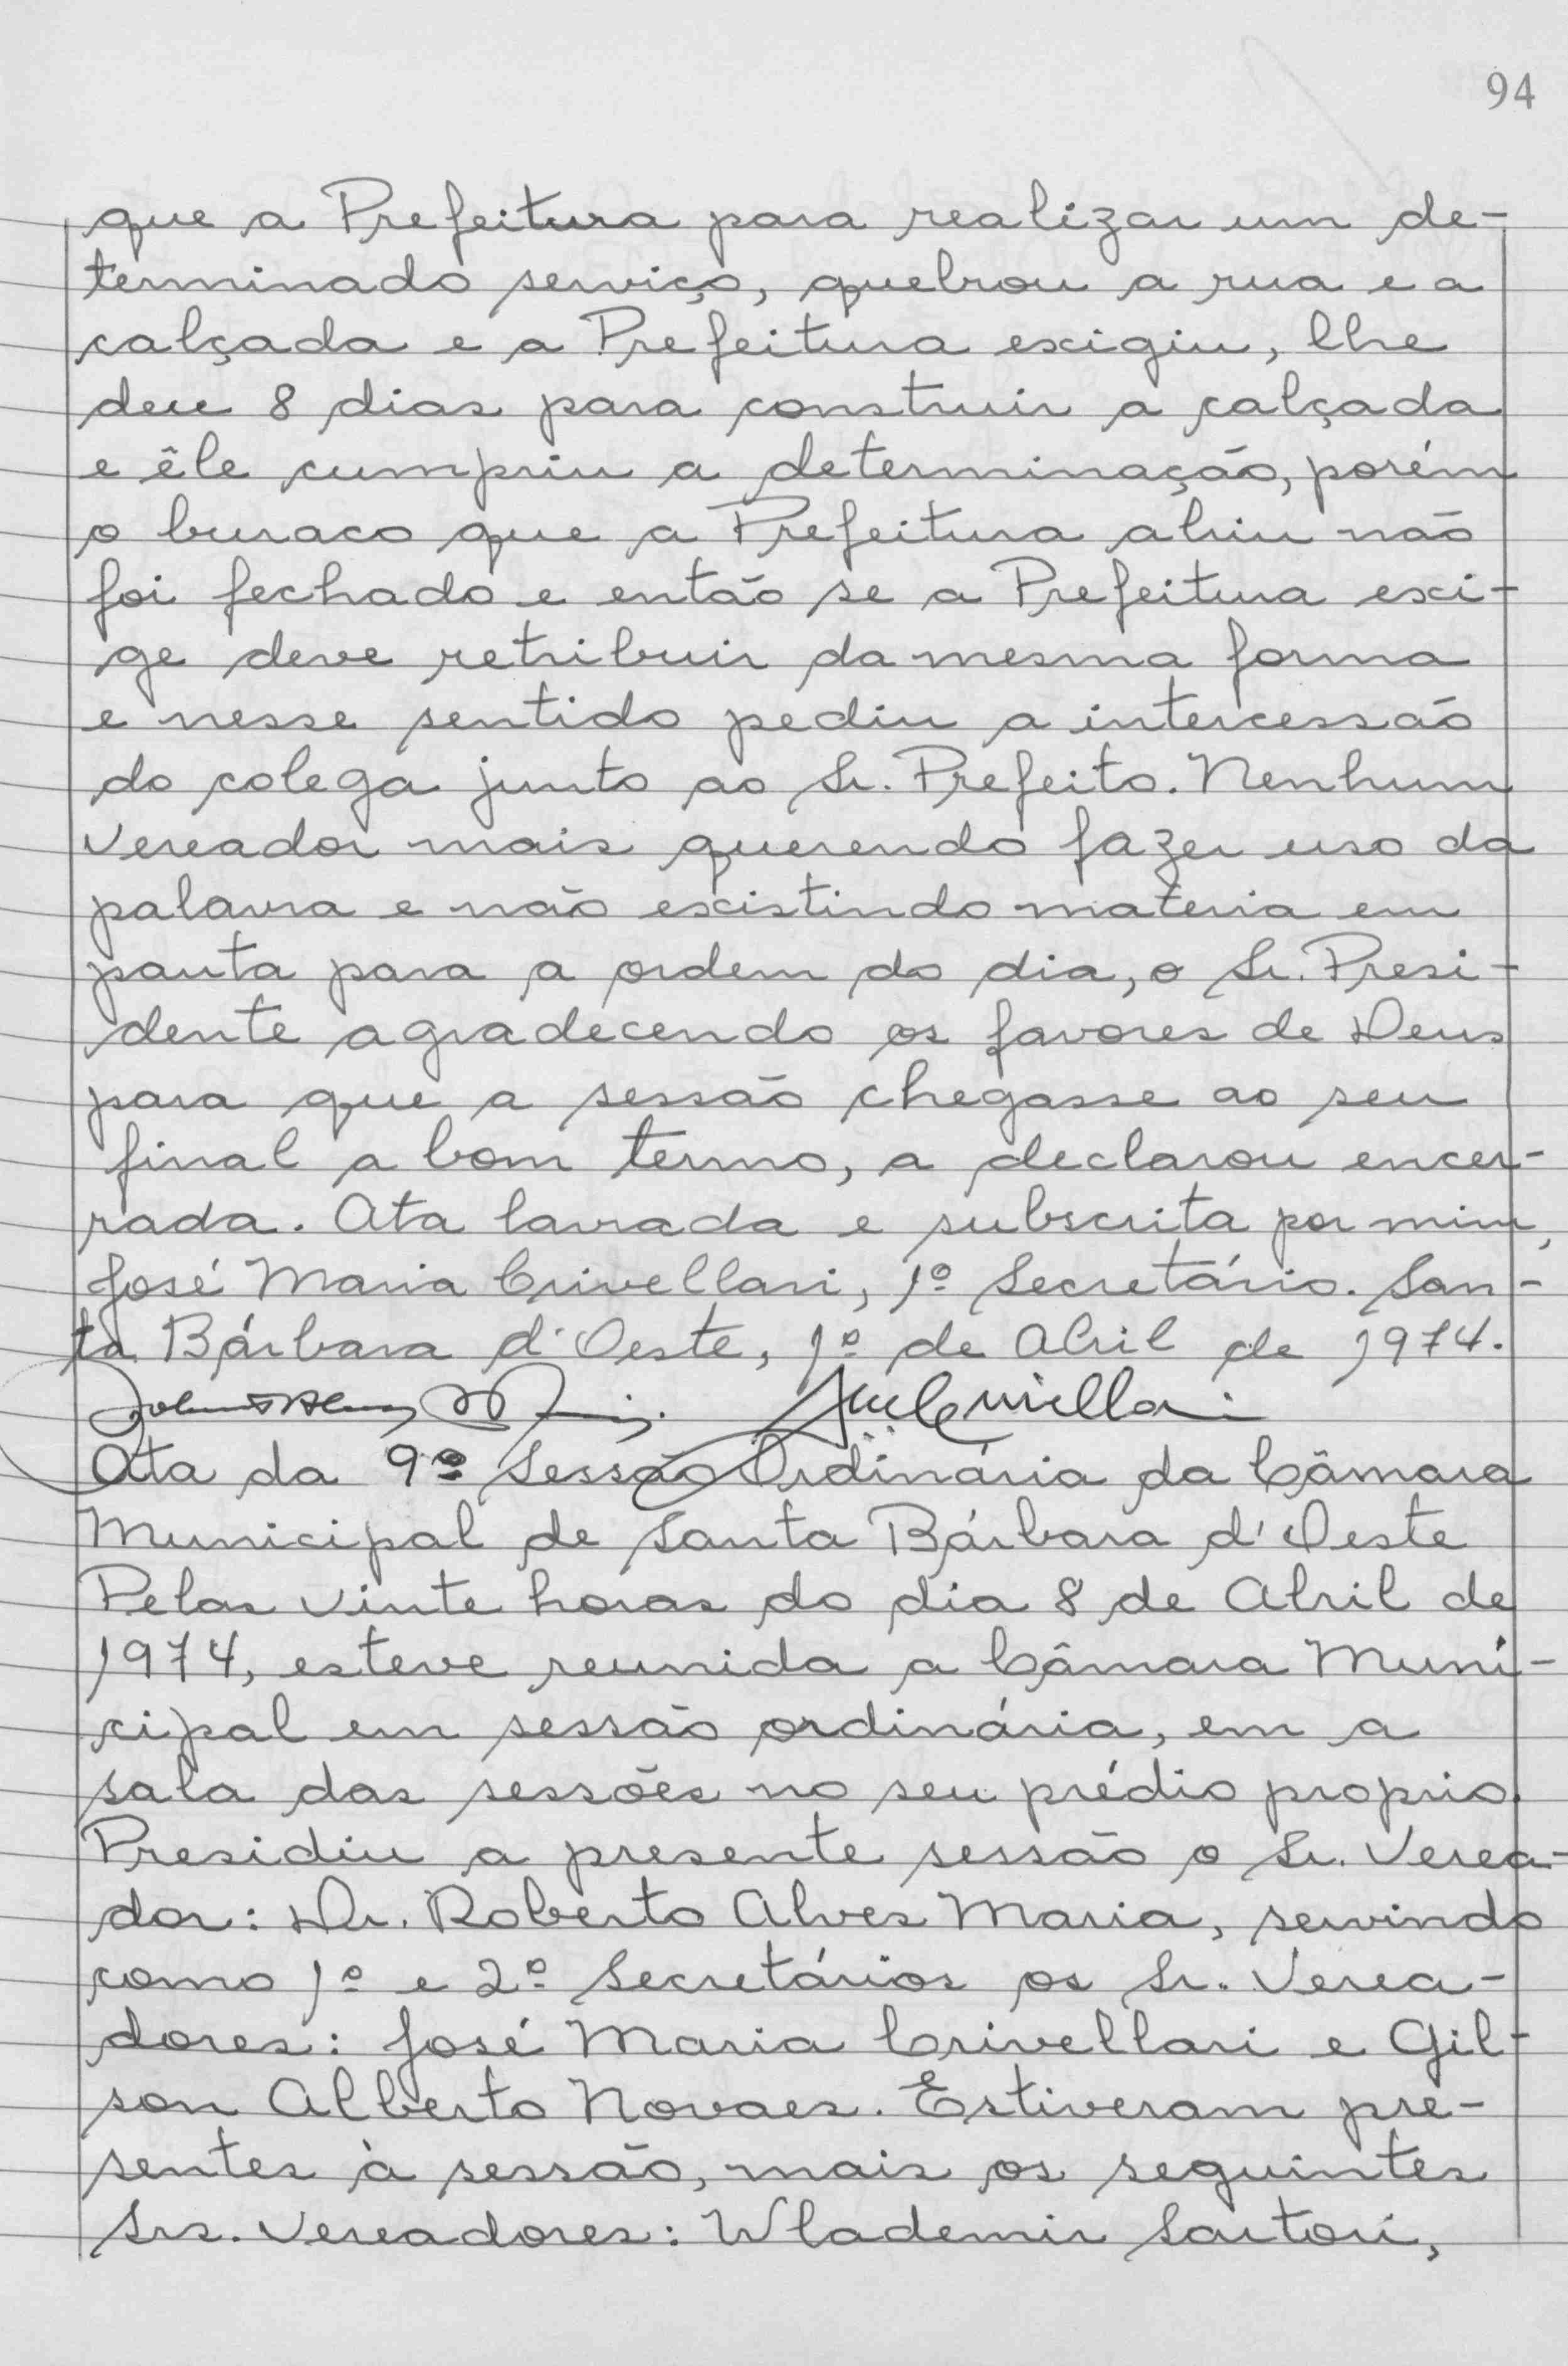 94
que a Prefeitura para realizar um de-
terminado serviço, quebrou a rua e a
calçada e a Prefeitura exigiu, lhe
deu 8 dias para construir a calçada
e êle cumpriu a determinação, porém
o buraco que a Prefeitura abriu não
foi fechado e então se a Prefeitura exi-
ge deve retribuir da mesma forma
e nesse sentido pediu a intercessão
do colega junto ao Sr. Prefeito. Nenhum
vereador mais querendo fazer uso da
palavra e não existindo materia em
pauta para a ordem do dia, o Sr. Presi-
dente agradecendo os favores de Deus
para que a sessão chegasse ao seu
final a bom termo, a declarou encer-
rada. Ata lavrada e subscrita por mim,
José Maria Crivellari, 1º Secretário. San-
ta Bárbara d'Oeste, 1º de Abril de 1974.
Ata da 9ª Sessão Ordinária da Câmara
Municipal de Santa Bárbara d'Oeste
Pelas vinte horas do dia 8 de Abril de
1974, esteve reunida a Câmara Muni-
cipal em sessão ordinária, em a
sala das sessões no seu prédio proprio.
Presidiu a presente sessão o Sr. Verea-
dor: Dr. Roberto Alves Maria, servindo
como 1º e 2º Secretários os Sr. Verea-
dores: José Maria Crivellari e Gil-
son Alberto Novaes. Estiveram pre-
sentes à sessão, mais os seguintes
Srs. Vereadores: Wlademir Sartori,